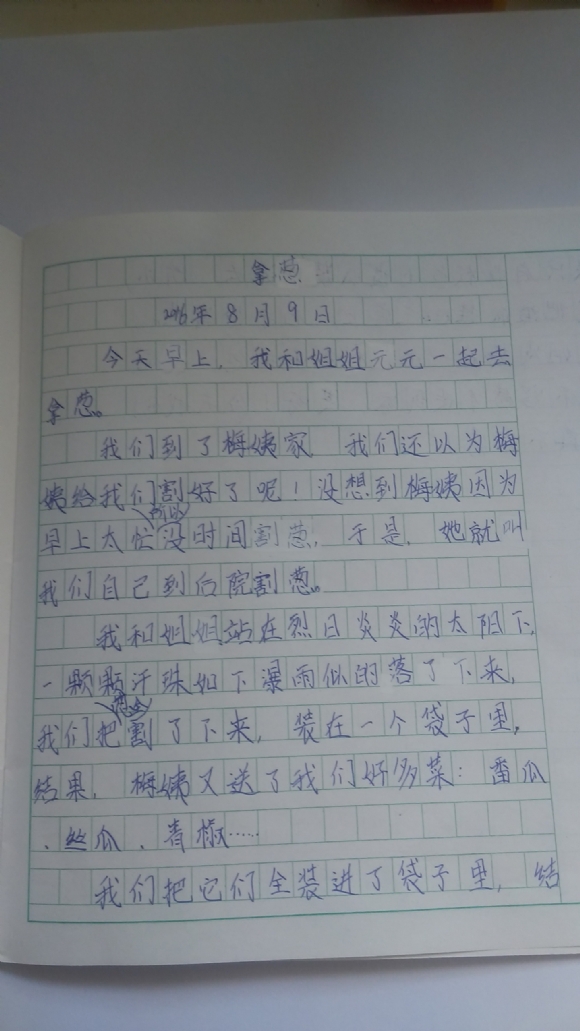 拿葱
2016年8月9日
今天早上，我和姐姐元元一起去
拿葱。
我们到了梅姨家，我们还以为梅
姨给我们割好了呢！没想到梅姨因为
早上太忙所以没时间割葱，于是，她就叫
我们自己到后院割葱。
我和姐姐站在烈日炎炎的太阳下，
一颗颗汗珠如下瀑雨似的落了下来，
我们把葱全割了下来，装在一个袋子里，
结果，梅姨又送了我们好多菜：番瓜
、丝瓜、青椒……
我们把它们全装进了袋子里，结